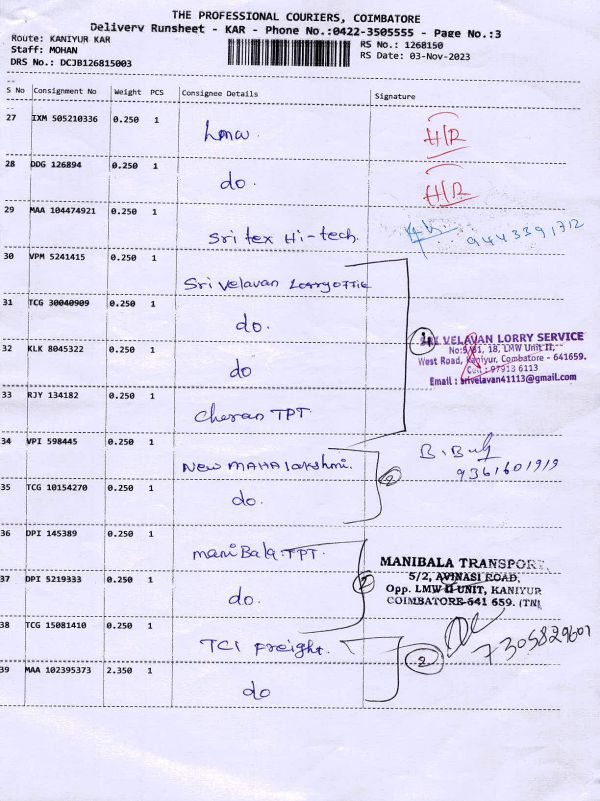 THE PROFESSIONAL COURIERS, COIMBATORE
Delivery Runsheet - KAR - Phone No.:0422-3505555 - Page No.:3
Route: KANIYUR KAR
RS No.: 1268150
Staff: MOHAN
RS Date: 03-Nov-2023
DRS No.: DCJB126815003
S No Consignment No Weight PCS Consignee Details Signature
27 IXM 505210336 0.250 1 Lmw. H/R
28 DDG 126894 0.250 1 do. H/R
29 MAA 104474921 0.250 1 Sri tex Hi-tech. 9443391712
30 VPM 5241415 0.250 1 Sri Velavan Lorry office
31 TCG 30040909 0.250 1 do.
32 KLK 8045322 0.250 1 do
4
SRI VELAVAN LORRY SERVICE
No:5/81, 18, LMW Unit II,
West Road, Kaniyur, Combatore - 641659.
Cell : 97913 6113
Email : srivelavan41113@gmail.com
33 RJY 134182 0.250 1 Cheran TPT
34 VPI 598445 0.250 1 New MAHA lakshmi. 2
9361601919
35 TCG 10154270 0.250 1 do.
36 DPI 145389 0.250 1 maniBala TPT. 2
MANIBALA TRANSPORT,
5/2, AVINASI ROAD,
Opp. LMW II UNIT, KANIYUR
COIMBATORE-641 659. (TN)
37 DPI 5219333 0.250 1 do.
38 TCG 15081410 0.250 1 TCI Freight. 2
7305829601
39 MAA 102395373 2.350 1 do